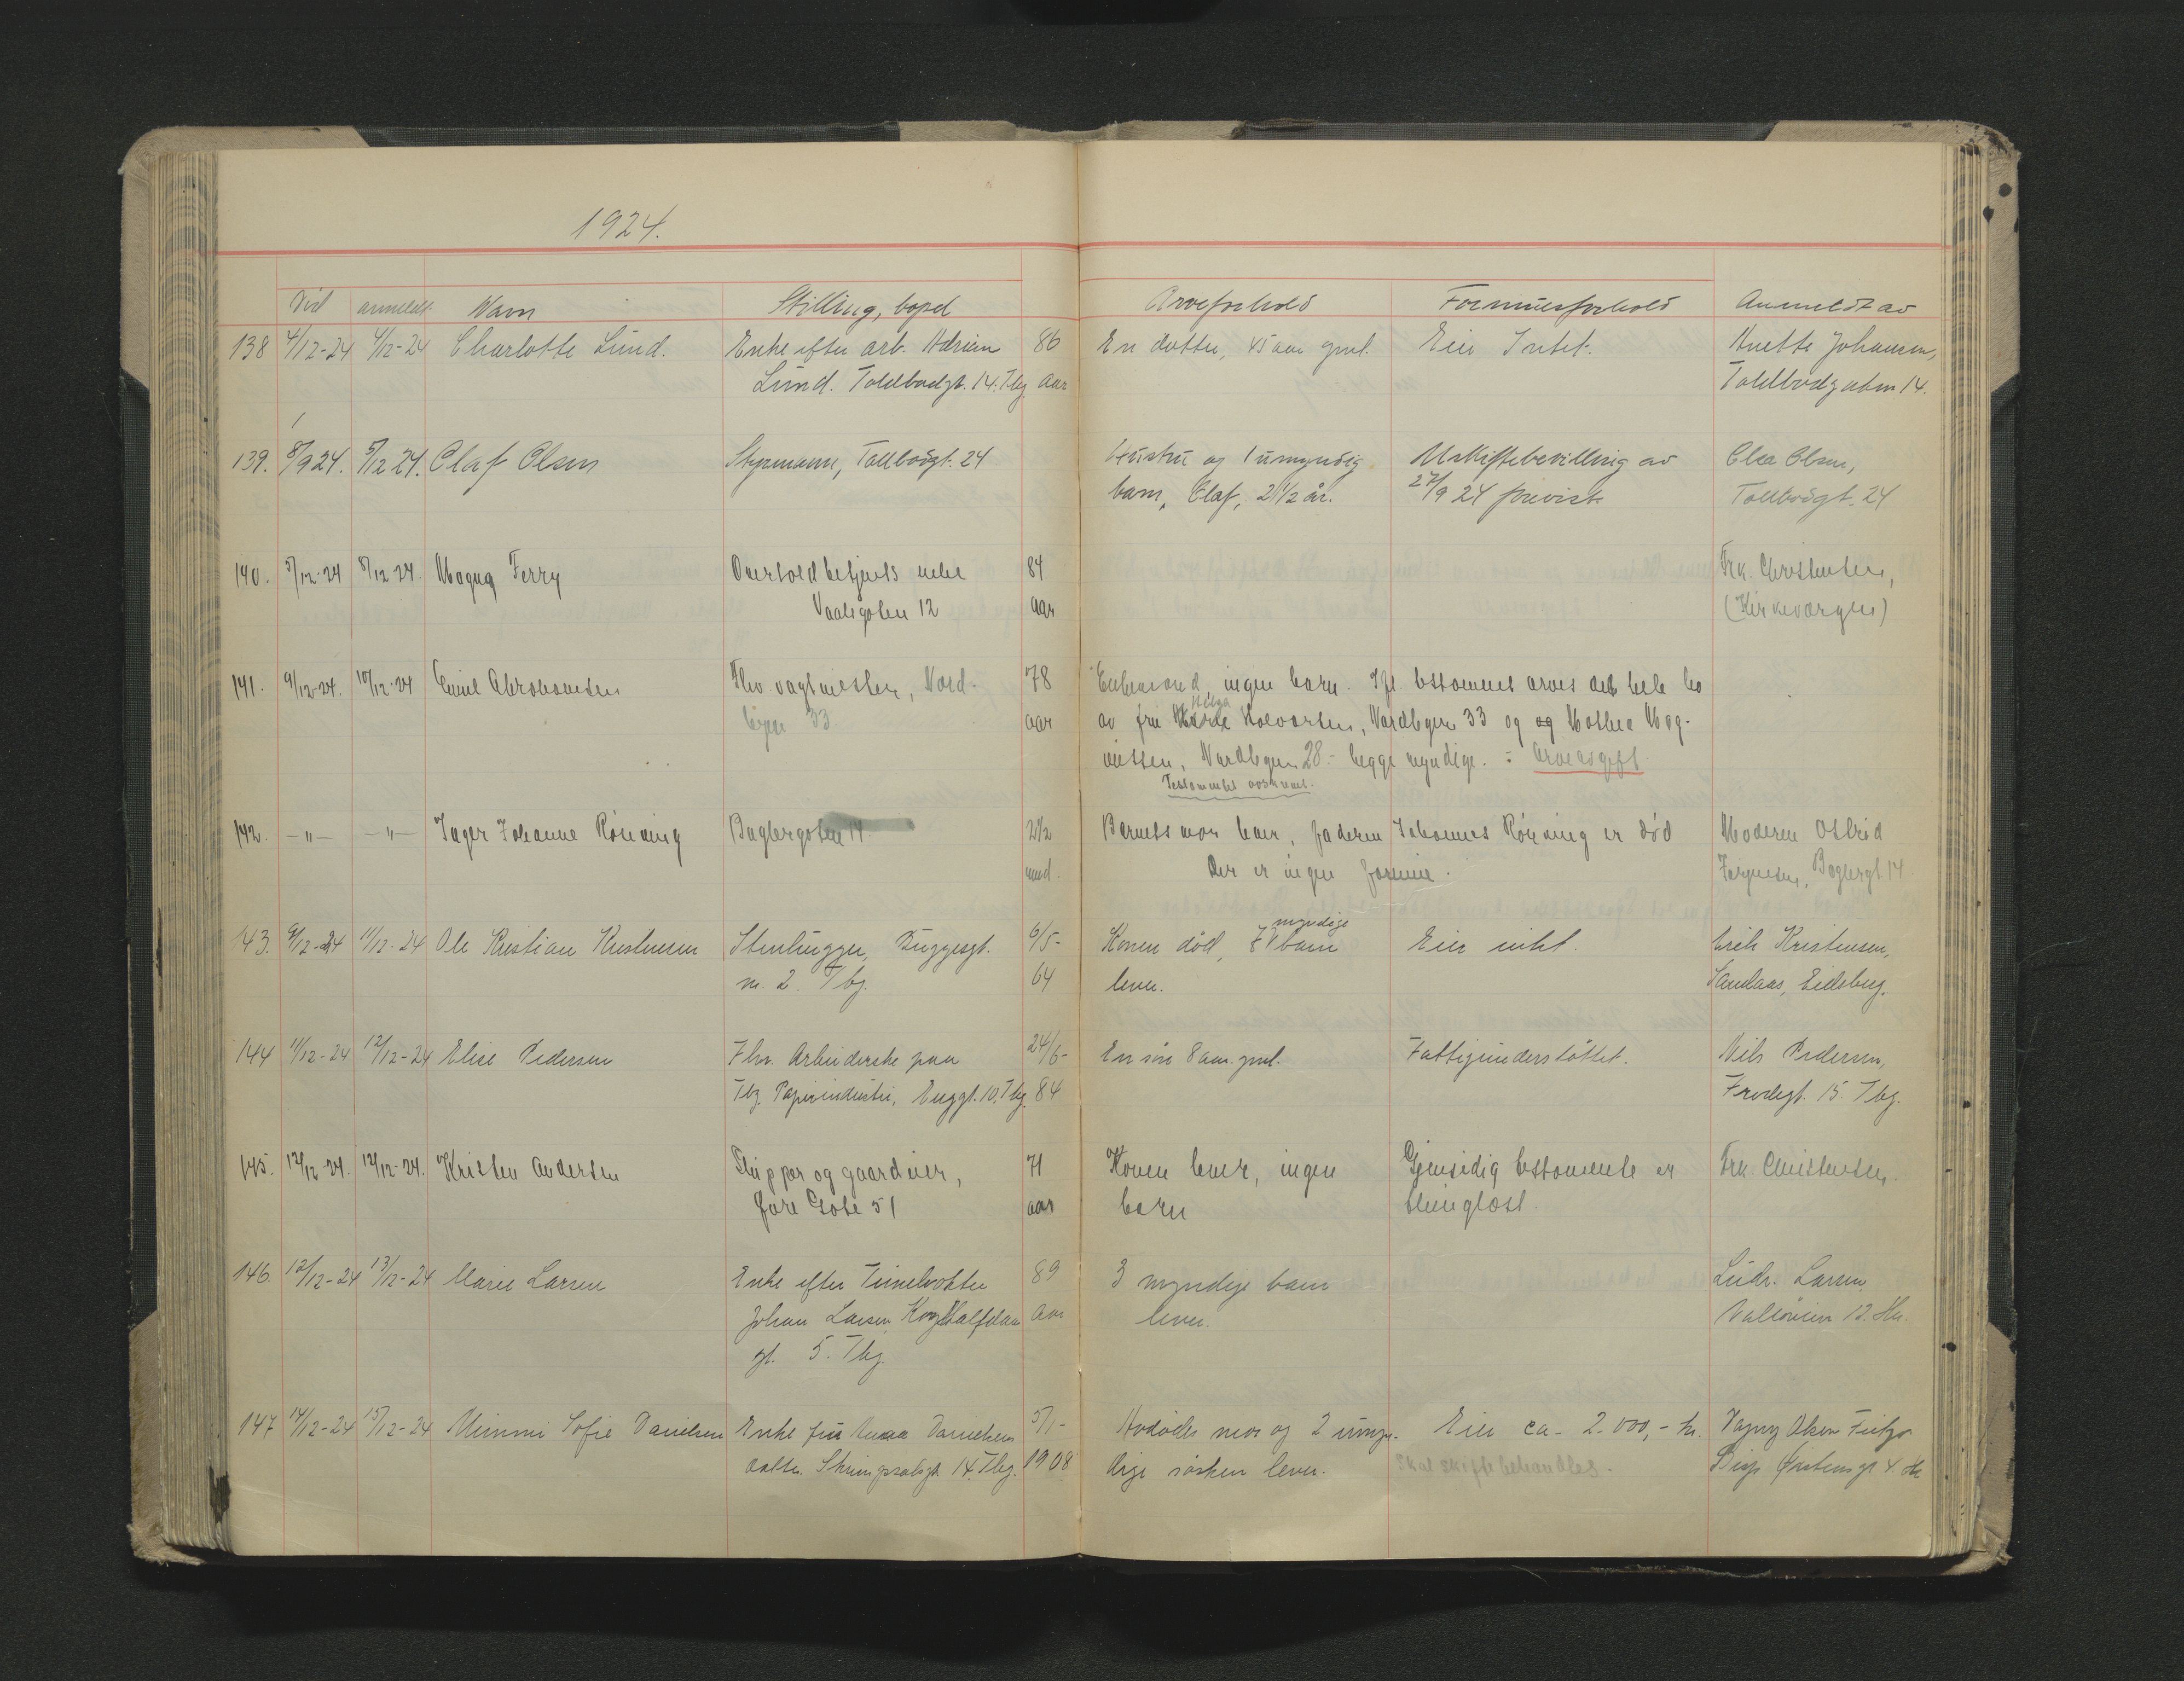 1924.
Död anmeldt Navn Stilling, bopel Arveforhold Formuesforhold Anmeldt av
138 4/12-24 4/12-24 Charlotte Lund. Enke efter arb. Adrian 86 En datter, 45 aar gml. Eier Intet. Anette Johansen,
Lund. Toldbodgt. 14. Tbg. aar Toldbodgaten 14.
139. 8/9 24. 5/12 24. Olaf Olsen Styrmann, Tollbodgt. 24 Hustru og 1 umyndig Uskiftebevilling av Olea Olsen,
barn, Olaf, 2 1/2 år. 27/9 24 forevist Tollbodgt. 24
140. 5/12-24 8/12 24. Magna Ferry Overtoldbetjents enke 84 Frk. Christensen,
12 aar (Kirkeværgen)
141. 9/12-24. 10/12-24 Emil Abrahamsen Fhv. vagtmester, Nord- 78 Enkemand, ingen barn. Ifl. testament arves det hele bo
byen 33 aar av fru Helga Halvorsen, Nordbyen 33 og og Mathea Mag-
nussen, Nordbyen 28.- begge myndige. = Arveavgift
Testamentet
142. -"- -"- Inger Johanne Rönning Baglergaten 14. 2 1/2 Barnets mor lever, faderen Johannes Rönning er död Moderen Astrid
mnd. Der er ingen formue. Jörgensen, Baglergt. 14
143. 9/12-24 11/12-24 Ole Kristian Kristensen Stenhugger, 6/5- Konen död, 7 myndige barn Eier intet. Erik Kristensen,
nr. 2. Tbg. 64 lever. Sandaas, Eidsberg.
144 11/12-24 12/12-24 Elise Pedersen Fhv. Arbeiderske paa 24/6- En sön 8 aar. gml. Fattigunderstöttet. Nils Pedersen,
Tbg. Papirindustri, Enggt. 10. Tbg. 84 Frodegt. 15. Tbg.
145. 12/12-24. 12/12-24. Kristen Andersen Skipper og gaardeier, 71 Konen lever, ingen Gjensidig testamente er Frk. Christensen.
Fære Gate 51 aar barn tinglæst.
146. 12/12-24 13/12-24 Marie Larsen Enke efter 89 3 myndige barn Ludv. Larsen,
Johan Larsen, Kong Halfdans aar lever. 12.
gt. 5. Tbg.
147 14/12-24 15/12-24 Mimmi Sofie Danielsen Enke fru Anna Danielsens 5/1- Avdödes mor og 2 umyn- Eier ca. 2.000,- kr. Dagny Olsen
datter. 14. Tbg. 1908 dige sösken lever. Skal skiftebehandles. 4.